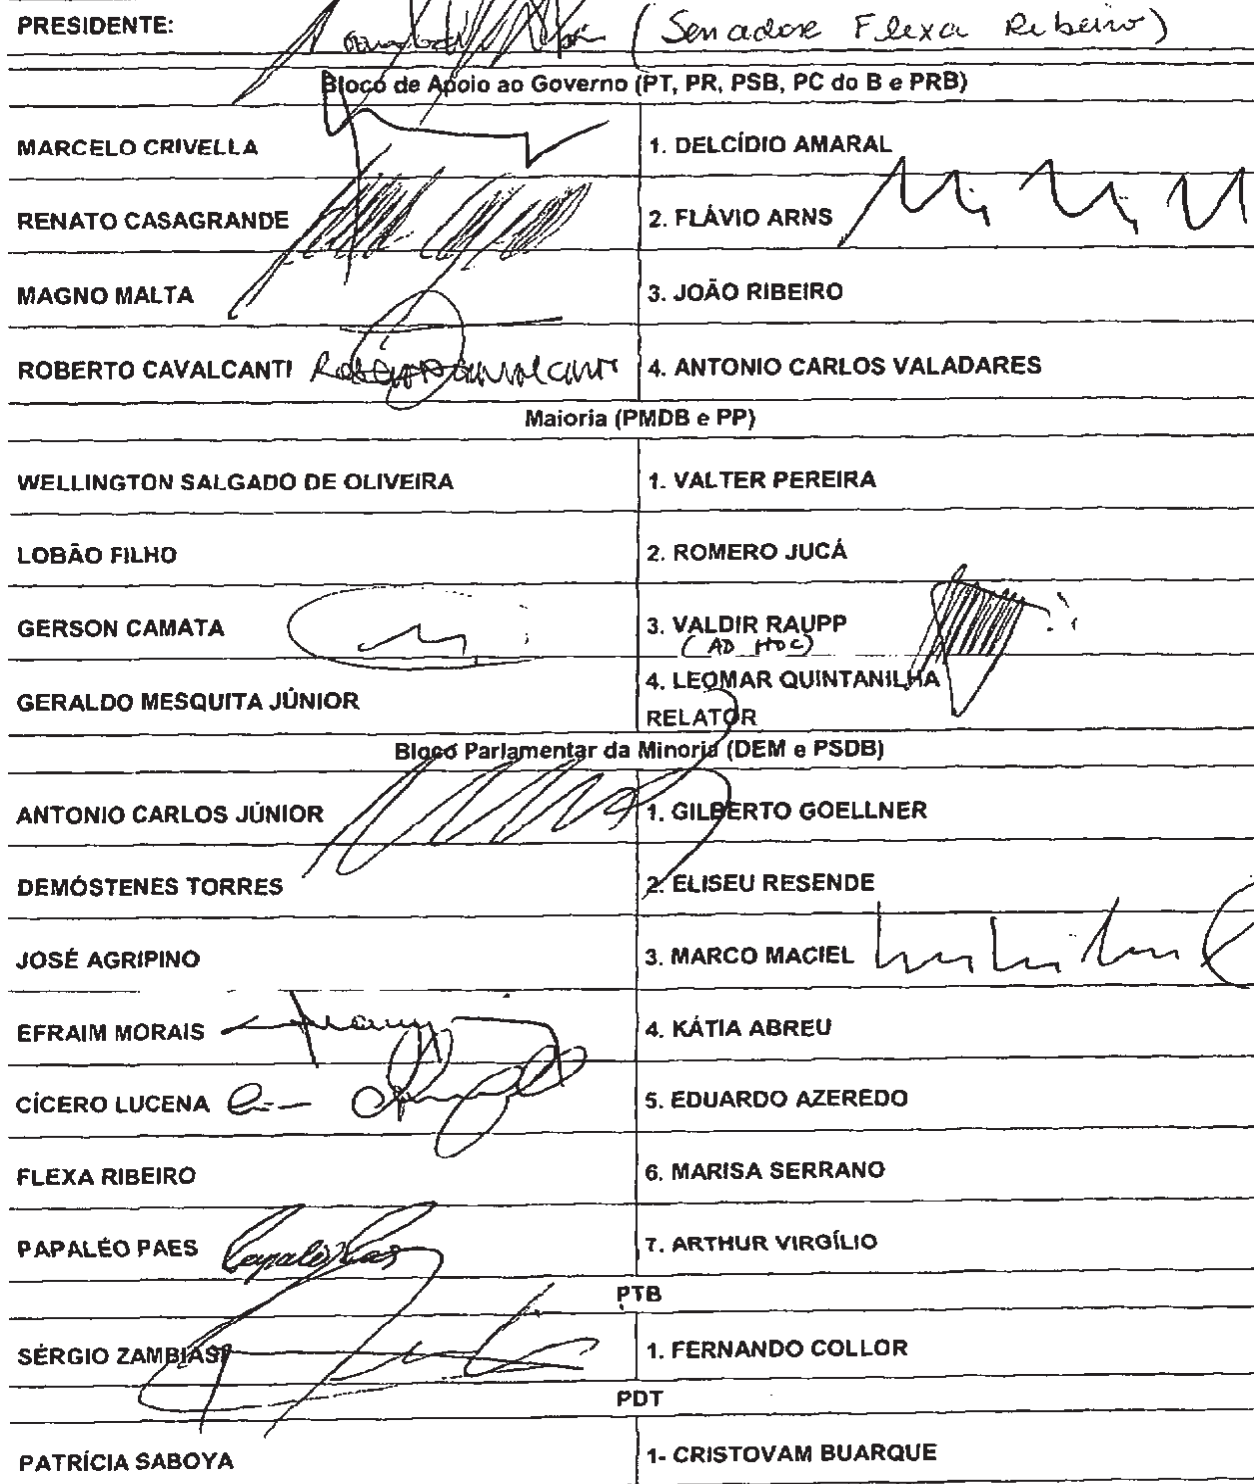 PRESIDENTE: (Senador Flexa Ribeiro)
Bloco de Apoio ao Governo (PT, PR, PSB, PC do B e PRB)
MARCELO CRIVELLA 1. DELCÍDIO AMARAL
RENATO CASAGRANDE 2. FLÁVIO ARNS
MAGNO MALTA 3. JOÃO RIBEIRO
ROBERTO CAVALCANTI Roberto Cavalcanti 4. ANTONIO CARLOS VALADARES
Maioria (PMDB e PP)
WELLINGTON SALGADO DE OLIVEIRA 1. VALTER PEREIRA
LOBÃO FILHO 2. ROMERO JUCÁ
GERSON CAMATA 3. VALDIR RAUPP
(AD HOC)
GERALDO MESQUITA JÚNIOR 4. LEOMAR QUINTANILHA
RELATOR
Bloco Parlamentar da Minoria (DEM e PSDB)
ANTONIO CARLOS JÚNIOR 1. GILBERTO GOELLNER
DEMÓSTENES TORRES 2. ELISEU RESENDE
JOSÉ AGRIPINO 3. MARCO MACIEL
EFRAIM MORAIS 4. KÁTIA ABREU
CÍCERO LUCENA 5. EDUARDO AZEREDO
FLEXA RIBEIRO 6. MARISA SERRANO
PAPALÉO PAES Papaléo Paes 7. ARTHUR VIRGÍLIO
PTB
SÉRGIO ZAMBIASI 1. FERNANDO COLLOR
PDT
PATRÍCIA SABOYA 1- CRISTOVAM BUARQUE